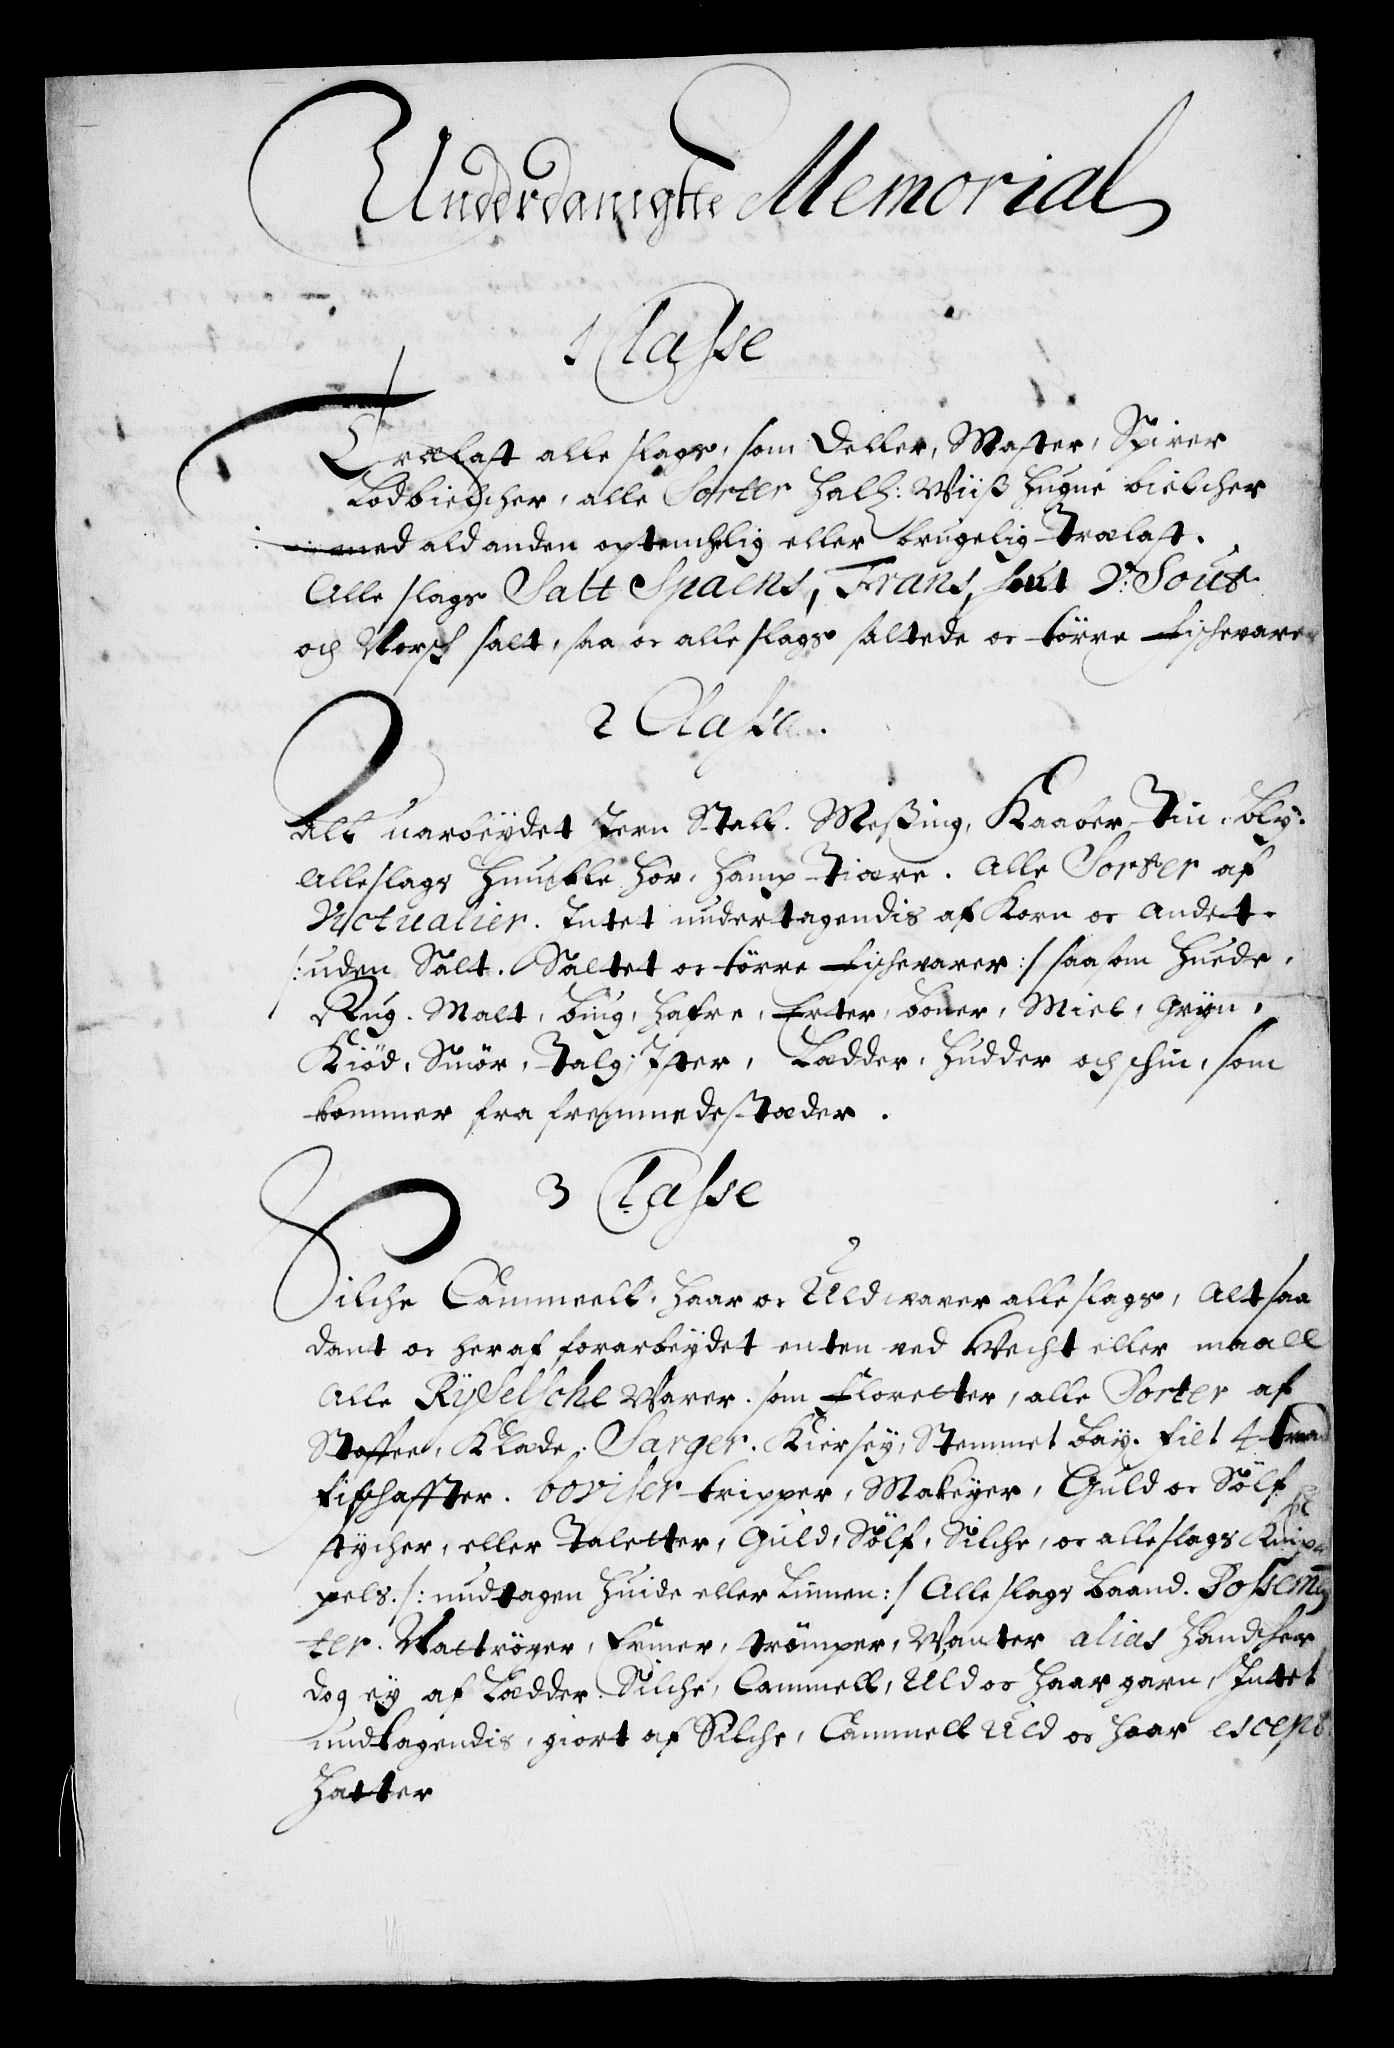 Underdanigste Memorial
1 Classe
Trælast alle slags, som Deller, Master, Spirer
Lodbielcher, alle Sorter halff: Wiiß hugne bielcher
med ald anden optenchelig eller brugelig Trælast.
Alle slags Salt Spaens, Frans, Sout
och Norsch salt, saa oc alle slags saltede oc törre Fischevarer
2 Classe.
Alt uarbeydet Jern Staal. Meßing, Kaaber, Tin, bly.
Alle slags Humble hör, hamp Tiære. Alle Sorter af
Victualier. Intet undertagendis af Korn oc Andet
/: uden Salt. Saltet oc törre Fischevarer :/ saasom huede,
Rug. Malt, biug, hafre, Erter, böner, Miel, gryn,
Kiöd, Smör, Talg, Ister, Lædder, Hudder och schin, som
kommer fra fremmede Stæder.
3 Classe
Silche Cammell, haar oc Uldwarer alle slags, Alt saa
dant oc heraf forarbeydet enten ved Wecht eller maall
Alle Rysselsche Warer. som Floretter, alle Sorter af
Stoffer, Klæde, Sarger. Kiersey, Stemmet bay. Filt 4 traad
Fifschaffter. boviser tripper, Makeyer, Guld oc Sölf
stycher, eller Taletter, Guld, Sölf, Silche, oc alle slags Knip
pels. /: undtagen huide eller Linnen :/ Alle slags baand. Possemen
ter. Nattröyer, strömper, Wanter alias handscher
dog ey af Lædder. Silche, Cammell, Uld oc haar garn, Intet
undtagendis, giort af Silche, Cammell Uld oc haar except
Hatter